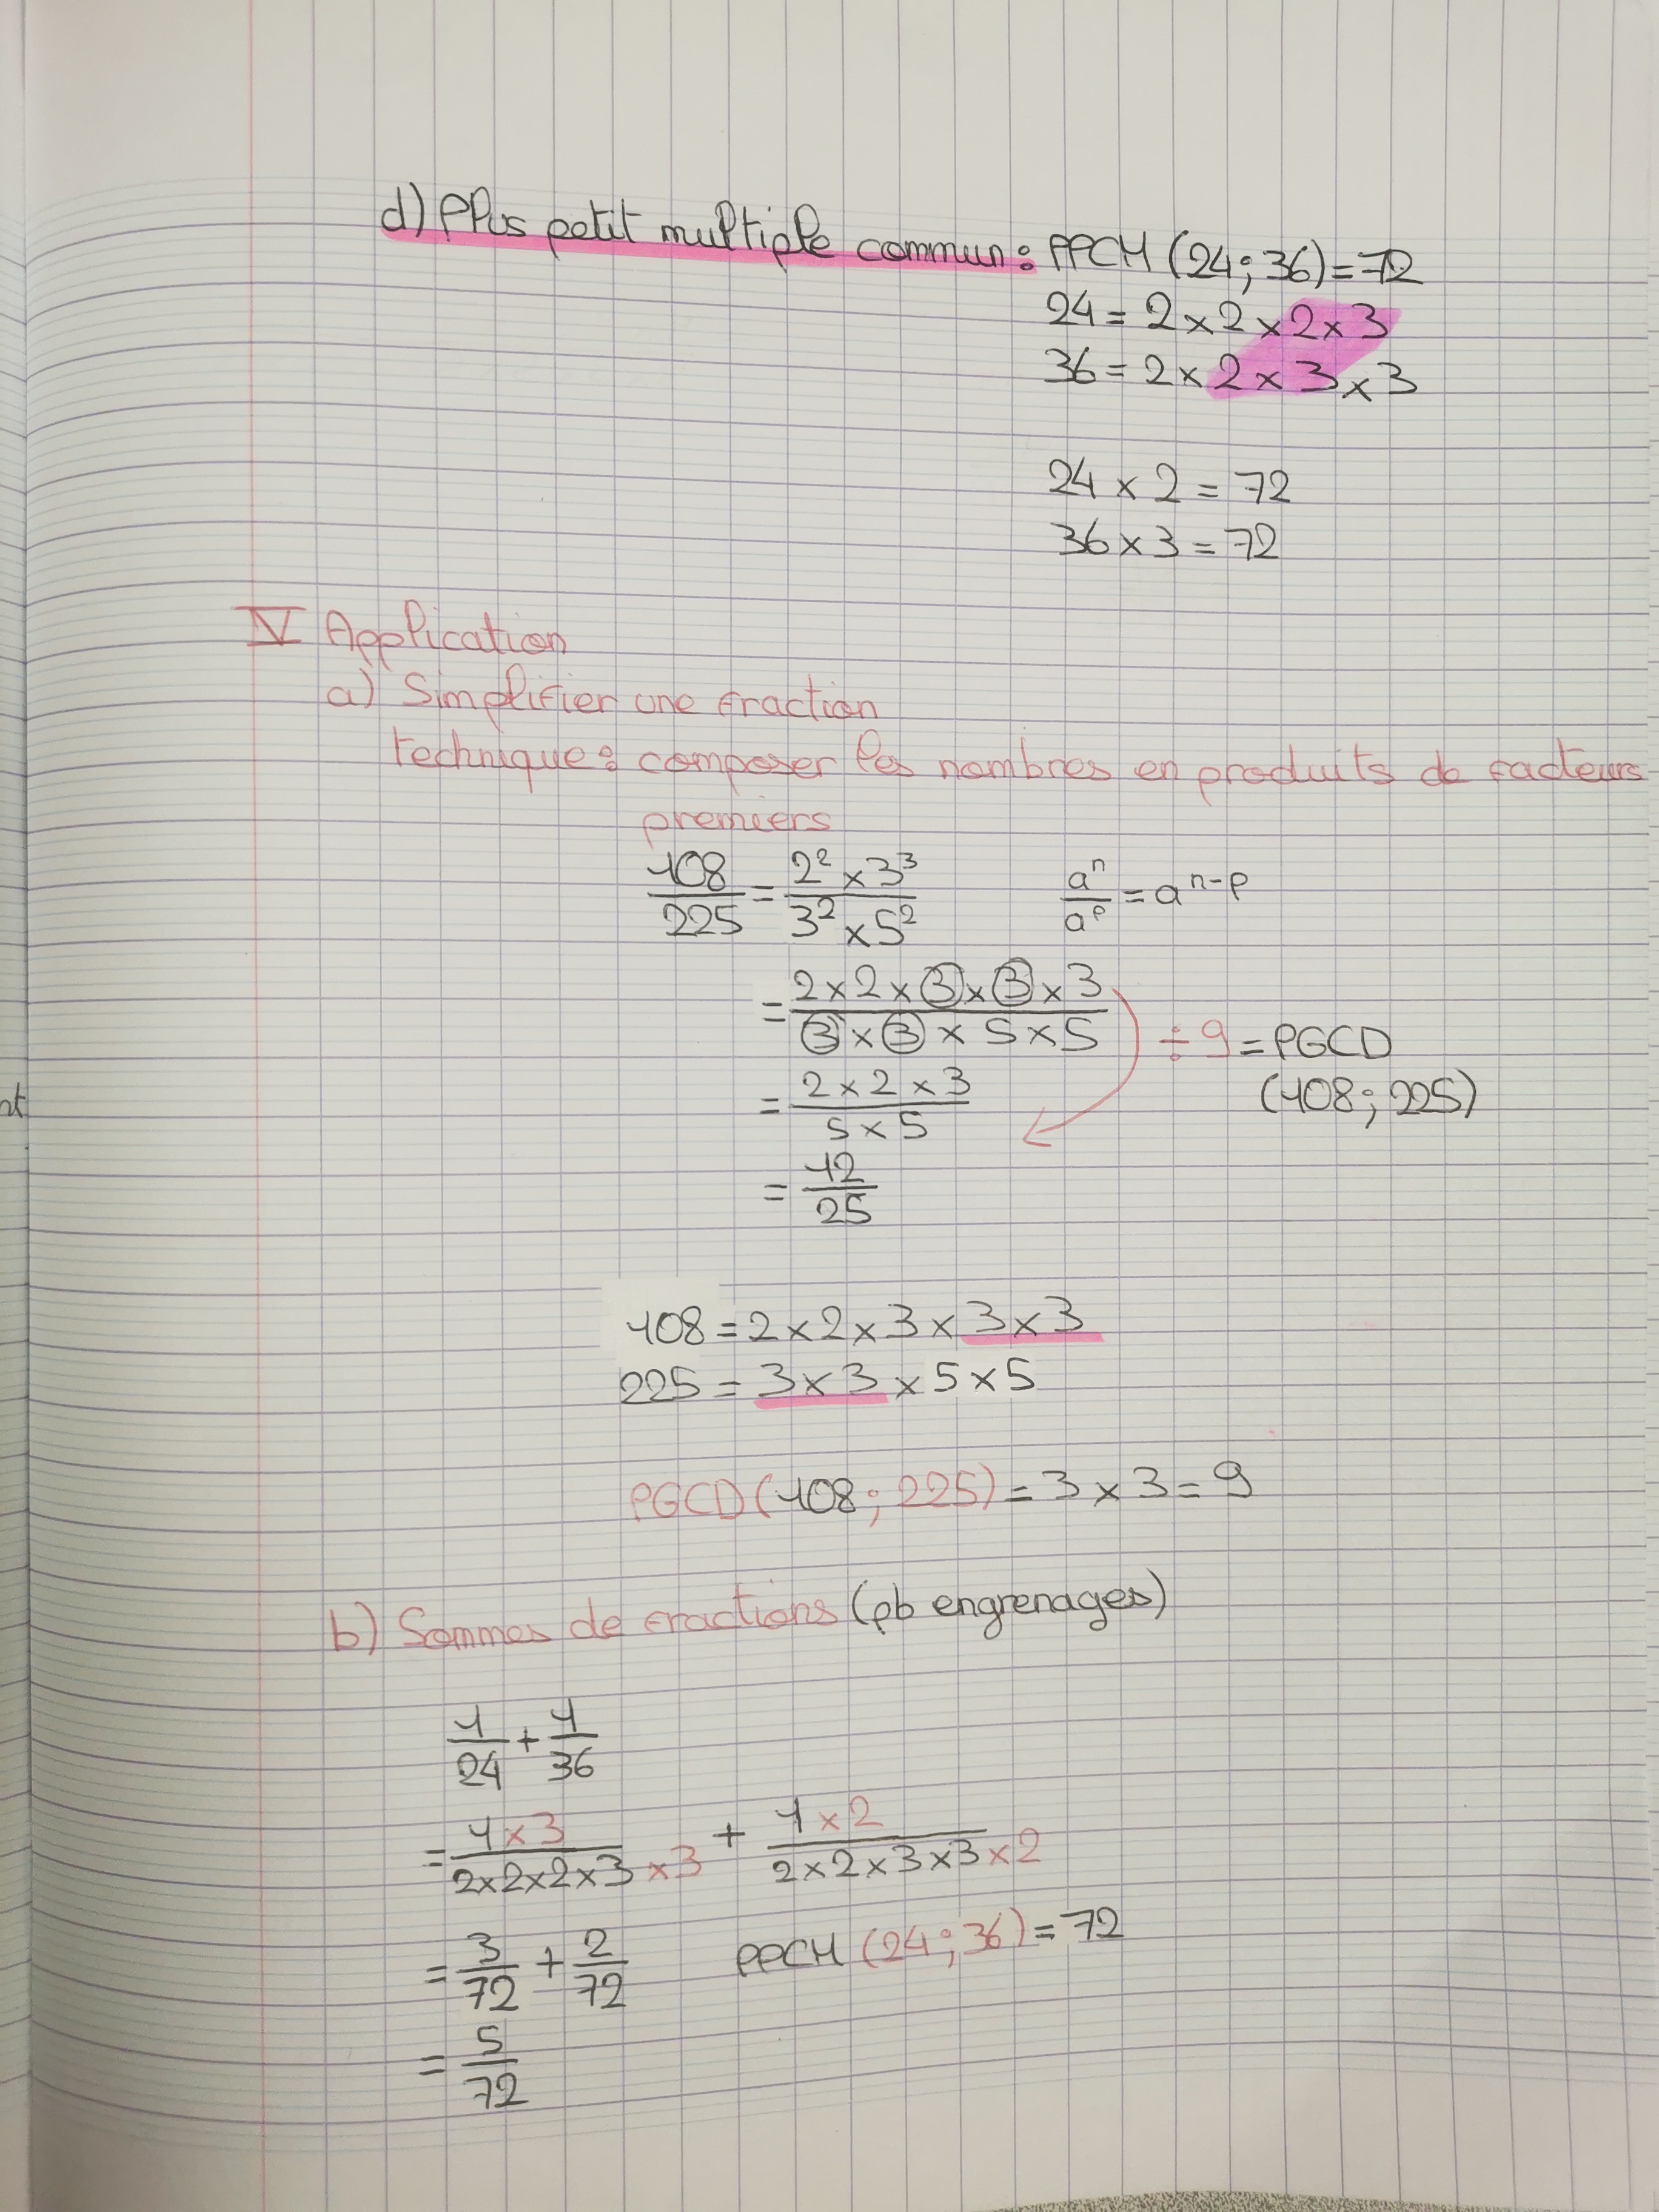 d) Plus petit multiple commun : PPCM (24 ; 36) = 72
24 = 2 × 2 × 2 × 3
36 = 2 × 2 × 3 × 3
24 × 2 = 72
36 × 3 = 72
IV Application
a) Simplifier une fraction
technique : composer les nombres en produits de facteurs
premiers
108/225 = 2² × 3³ / 3² × 5²
aⁿ/aᵖ = aⁿ⁻ᵖ
= 2 × 2 × 3 × 3 × 3 / 3 × 3 × 5 × 5
÷ 9 = PGCD
(108 ; 225)
= 2 × 2 × 3 / 5 × 5
= 12/25
108 = 2 × 2 × 3 × 3 × 3
225 = 3 × 3 × 5 × 5
PGCD (108 ; 225) = 3 × 3 = 9
b) Sommes de fractions (pb engrenages)
1/24 + 1/36
= 1 × 3 / 2 × 2 × 2 × 3 × 3 + 1 × 2 / 2 × 2 × 3 × 3 × 2
= 3/72 + 2/72 PPCM (24 ; 36) = 72
= 5/72